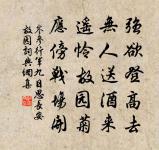 強欲登高去
無人送酒來
遙憐故園菊
應傍戰場開
岑參行軍九日思長安
故園詞典網書